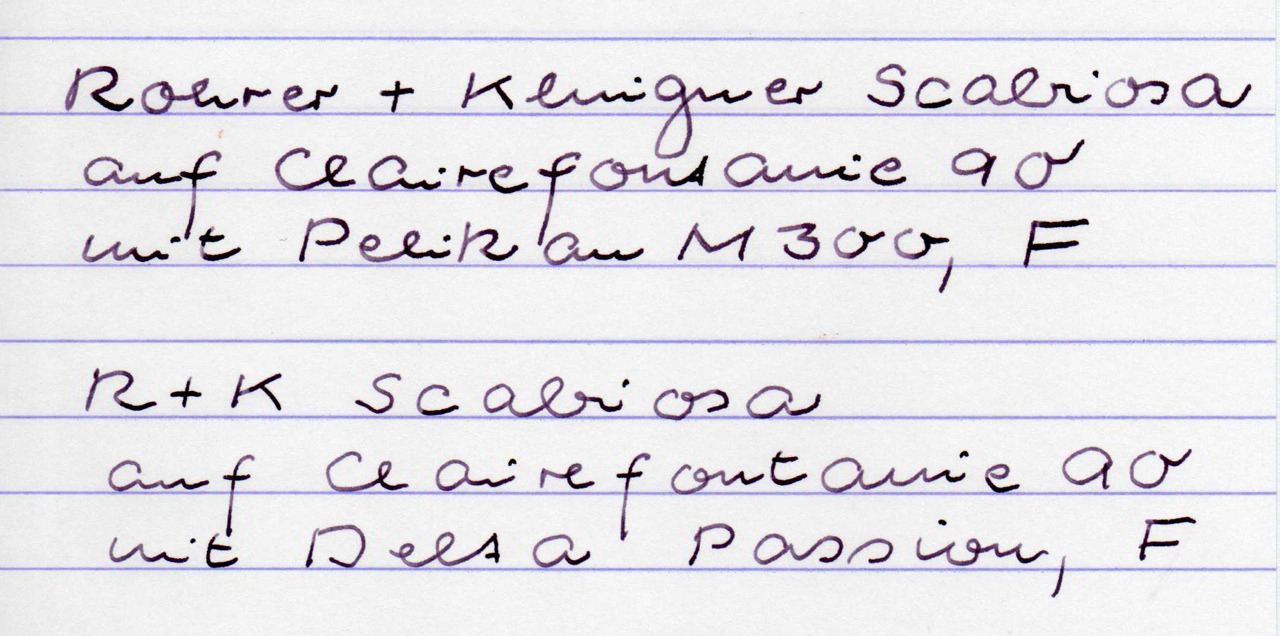 Rohrer + Klingner Scabiosa
auf Clairefontaine 90
mit Pelikan M300, F
R+K Scabiosa
auf Clairefontaine 90
mit Delta Passion, F